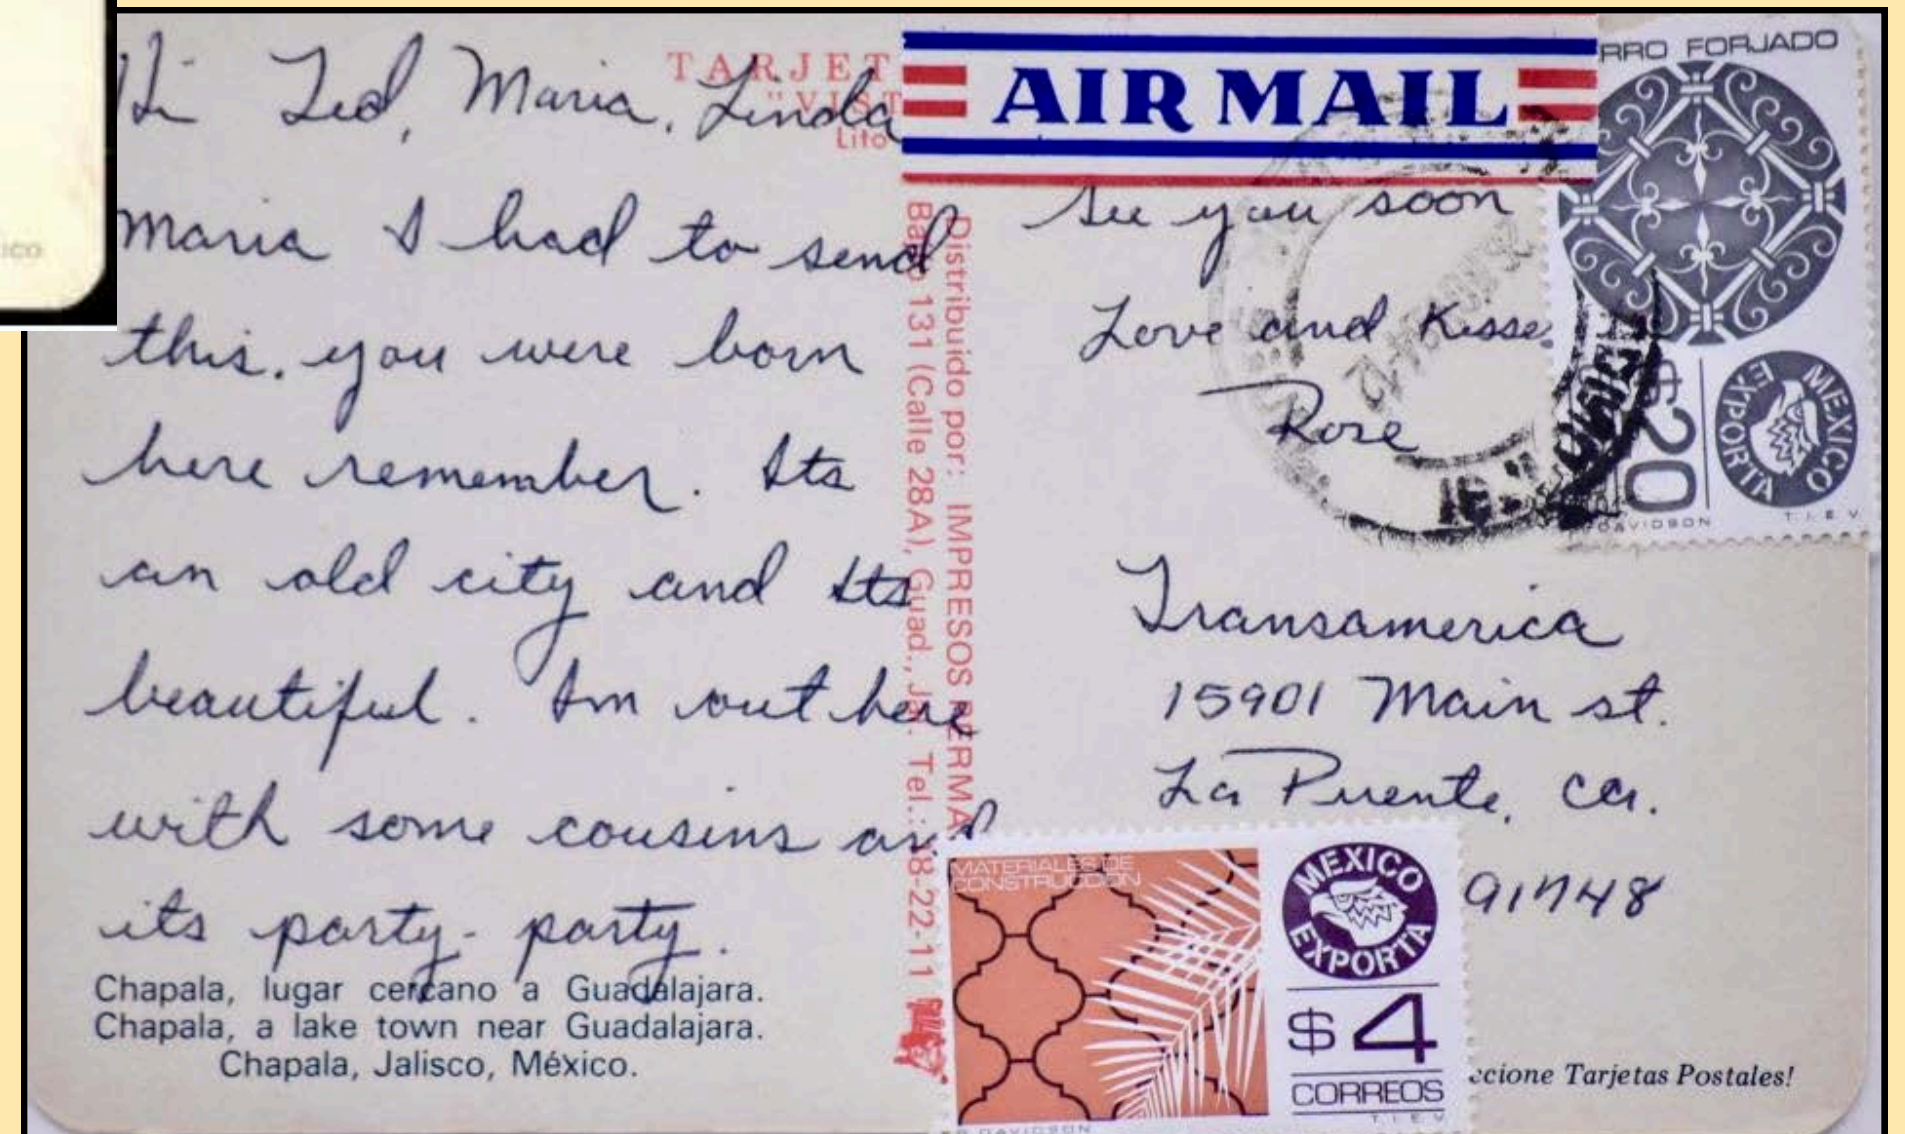 ico
Hi Ted, Maria, Linda
Maria I had to send
this. you were born
here remember. Its
an old city and Its
beautiful. Im out here
with some cousins and
its party-party.
Chapala, lugar cercano a Guadalajara.
Chapala, a lake town near Guadalajara.
Chapala, Jalisco, México.
TARJET
"VIST
Lito
Distribuido por: IMPRESOS BERMA
131 (Calle 28A), Guad., Jal. Tel.: 18-22-11
AIR MAIL
See you soon
Love and Kisses
Rose
Transamerica
15901 Main st.
La Puente, Ca.
91748
RRO FORJADO
$20
MEXICO
EXPORTA
DAVIDSON
T.I.E.V.
MATERIALES DE
CONSTRUCCION
MEXICO
EXPORTA
$4
CORREOS
T.I.E.V.
DAVIDSON
ccione Tarjetas Postales!